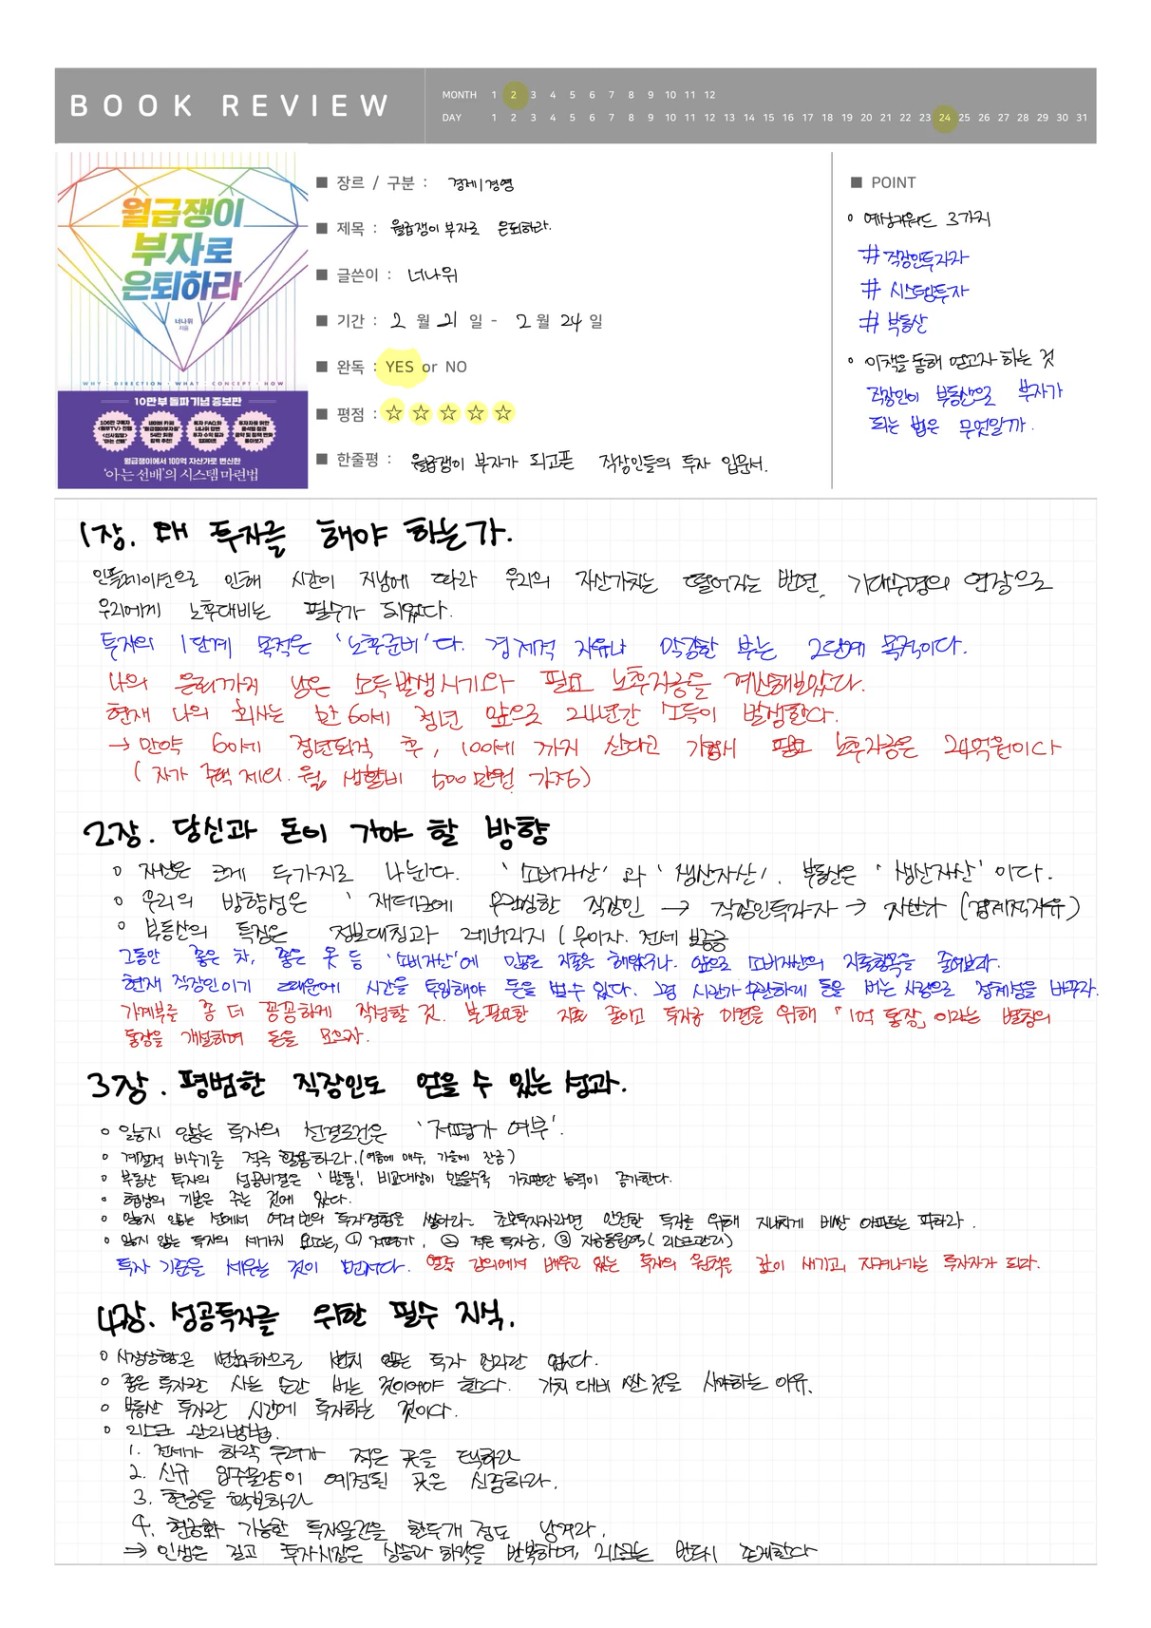 BOOK REVIEW
MONTH 1 2 3 4 5 6 7 8 9 10 11 12
DAY 1 2 3 4 5 6 7 8 9 10 11 12 13 14 15 16 17 18 19 20 21 22 23 24 25 26 27 28 29 30 31
월급쟁이
부자로
은퇴하라
너나위
지음
WHY · DIRECTION · WHAT · CONCEPT · HOW
10만 부 돌파 기념 증보판
월급쟁이에서 100억 자산가로 변신한
'아는 선배'의 시스템 마련법
■ 장르 / 구분 : 경제/경영
■ 제목 : 월급쟁이 부자로 은퇴하라.
■ 글쓴이 : 너나위
■ 기간 : 2 월 21 일 - 2 월 24 일
■ 완독 : YES or NO
■ 평점 : ☆ ☆ ☆ ☆ ☆
■ 한줄평 : 월급쟁이 부자가 되고픈 직장인들의 투자 입문서.
■ POINT
◦ 예상키워드 3가지
# 직장인투자자
# 시스템투자
# 부동산
◦ 이책을 통해 얻고자 하는 것
직장인이 부동산으로 부자가
되는 법은 무엇일까.
1장. 왜 투자를 해야 하는가.
인플레이션으로 인해 시간이 지남에 따라 우리의 자산가치는 떨어지는 반면, 기대수명의 연장으로
우리에게 노후대비는 필수가 되었다.
투자의 1단계 목적은 '노후준비'다. 경제적 자유나 막강한 부는 2단계 목적이다.
나의 은퇴까지 남은 소득발생시기와 필요 노후자금을 계산해보았다.
현재 나의 회사는 만 60세 정년 앞으로 24년간 소득이 발생한다.
→ 만약 60세 정년퇴직 후, 100세 까지 산다고 가정시 필요 노후자금은 24억원이다
(자가 주택 제외. 월 생활비 500만원 가정)
2장. 당신과 돈이 가야 할 방향
◦ 자산은 크게 두가지로 나뉜다. '소비자산' 과 '생산자산'. 부동산은 '생산자산' 이다.
◦ 우리의 방향성은 '재테크에 무관심한 직장인 → 직장인투자자 → 자산가 (경제적자유)
◦ 부동산의 특징은 정보대칭과 레버리지 (무이자. 전세 보증금
그동안 좋은 차, 좋은 옷 등 '소비자산'에 많은 지출을 해왔구나. 앞으로 소비자산의 지출항목을 줄여보자.
현재 직장인이기 때문에 시간을 투입해야 돈을 벌수 있다. 그럼 시간과 무관하게 돈을 버는 사람으로 정체성을 바꾸자.
가계부를 좀 더 꼼꼼하게 작성할 것. 불필요한 지출 줄이고 투자금 마련을 위해 「1억 통장」 이라는 별칭의
통장을 개설하여 돈을 모으자.
3장. 평범한 직장인도 얻을 수 있는 성과.
◦ 잃지 않는 투자의 선결조건은 '저평가 여부'.
◦ 계절적 비수기를 적극 활용하라. (여름에 매수, 가을에 잔금)
◦ 부동산 투자의 성공비결은 '발품'. 비교대상이 많을수록 가치판단 능력이 증가한다.
◦ 협상의 기본은 주는 것에 있다.
◦ 잃지 않는 선에서 여러번의 투자경험을 쌓아라. 초보투자자라면 안전한 투자를 위해 지나치게 비싼 아파트는 피하라.
◦ 잃지 않는 투자의 세가지 요소는, ① 저평가, ② 적은 투자금, ③ 자금동원력 (리스크관리)
투자 기준을 세우는 것이 먼저다. 열중 강의에서 배우고 있는 투자의 원칙을 깊이 새기고, 지켜나가는 투자자가 되라.
4장. 성공투자를 위한 필수 지식.
◦ 시장상황은 변화하므로 변치 않는 투자 원리란 없다.
◦ 좋은 투자란 사는 순간 버는 것이어야 한다. 가치 대비 싼 것을 사야하는 이유.
◦ 부동산 투자란 시간에 투자하는 것이다.
◦ 리스크 관리방법.
1. 전세가 하락 우려가 적은 곳을 택하라
2. 신규 입주물량이 예정된 곳은 신중하라.
3. 현금을 확보하라
4. 현금화 가능한 투자물건을 한두개 정도 남겨라.
→ 인생은 길고 투자시장은 상승과 하락을 반복하며, 리스크는 반드시 존재한다